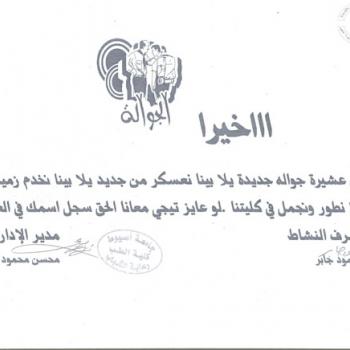 الجوالة
اااخيرا
عشيرة جواله جديدة يلا بينا نعسكر من جديد يلا بينا نخدم زمي
نطور ونجمل في كليتنا .لو عايز تيجي معانا الحق سجل اسمك في ال
رف النشاط
مدير الإدار
ود جابر
محسن محمود
جامعة اسيوط
كلية الطب
رعاية الشباب